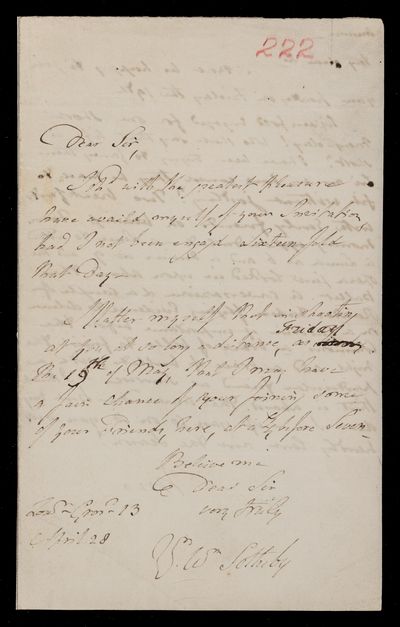 222
Dear Sir,
I shd with the greatest Pleasure
have availd myself of your Invitation,
had I not been engagd Sixteen fold
that Day—
I flatter myself that in shooting
at you at so long a distance, as
Friday
the 19th of May, that I may have
a fair chance of your joining some
of your Friends, here, at a ¼ before Seven—
Believe me
Dear Sir
very truly
Yrs Wm Sotheby
Lowr Grosvr 13
April 28